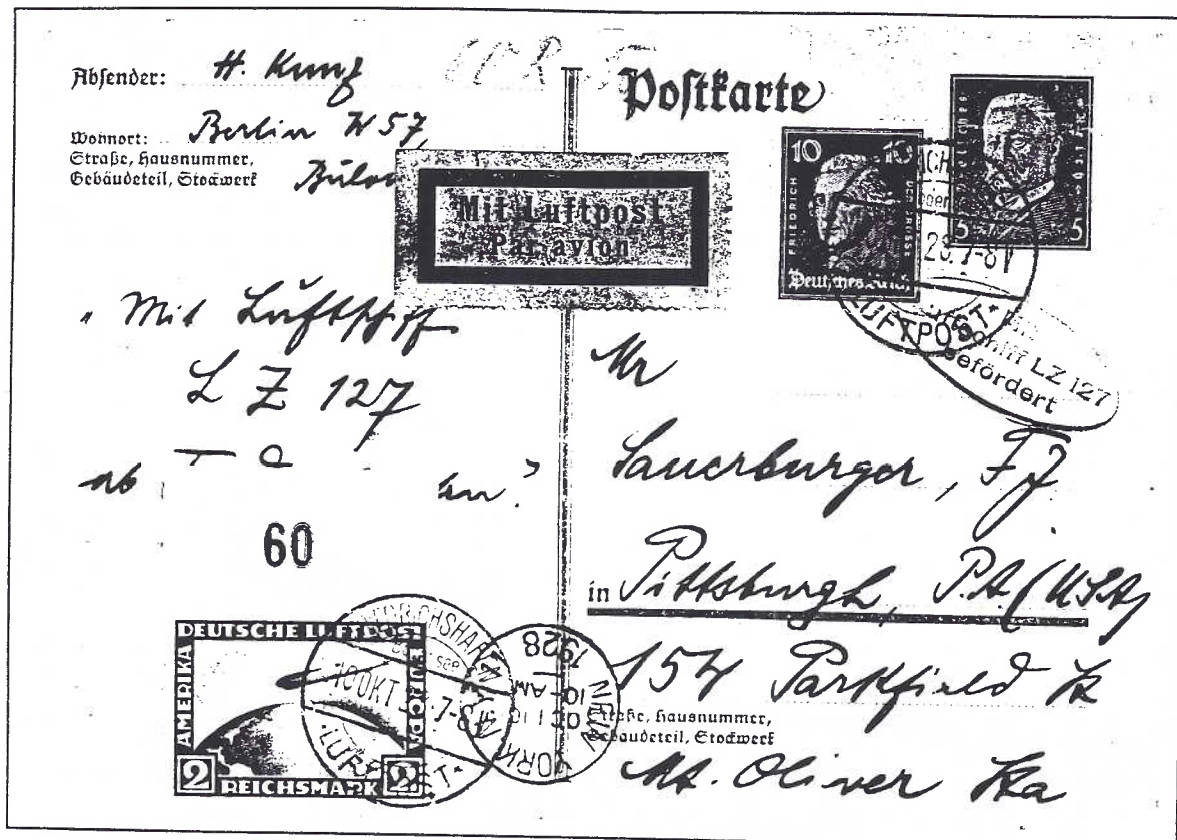 Absender: H. Kunz
Wohnort: Berlin W 57,
Straße, Hausnummer,
Gebäudeteil, Stockwerk
Postkarte
Mit Luftpost
Par avion
10 10
FRIEDRICH
DER GROSSE
Deutsches Reich
5 5
28.7-8V
LUFTPOST
Luftschiff LZ 127
befördert
"Mit Luftschiff
L Z 127
ab
60
Mr
Sauerburger, F J
in Pittsburgh, P.A. (USA)
154 Parkfield St
Straße, Hausnummer,
Gebäudeteil, Stockwerk
Mt. Oliver Sta
DEUTSCHE LUFTPOST
AMERIKA
EUROPA
2 REICHSMARK 2
FRIEDRICHSHAFEN
10 OKT 7-8
LUFTPOST
NEW YORK
OCT 16
10-AM
1928